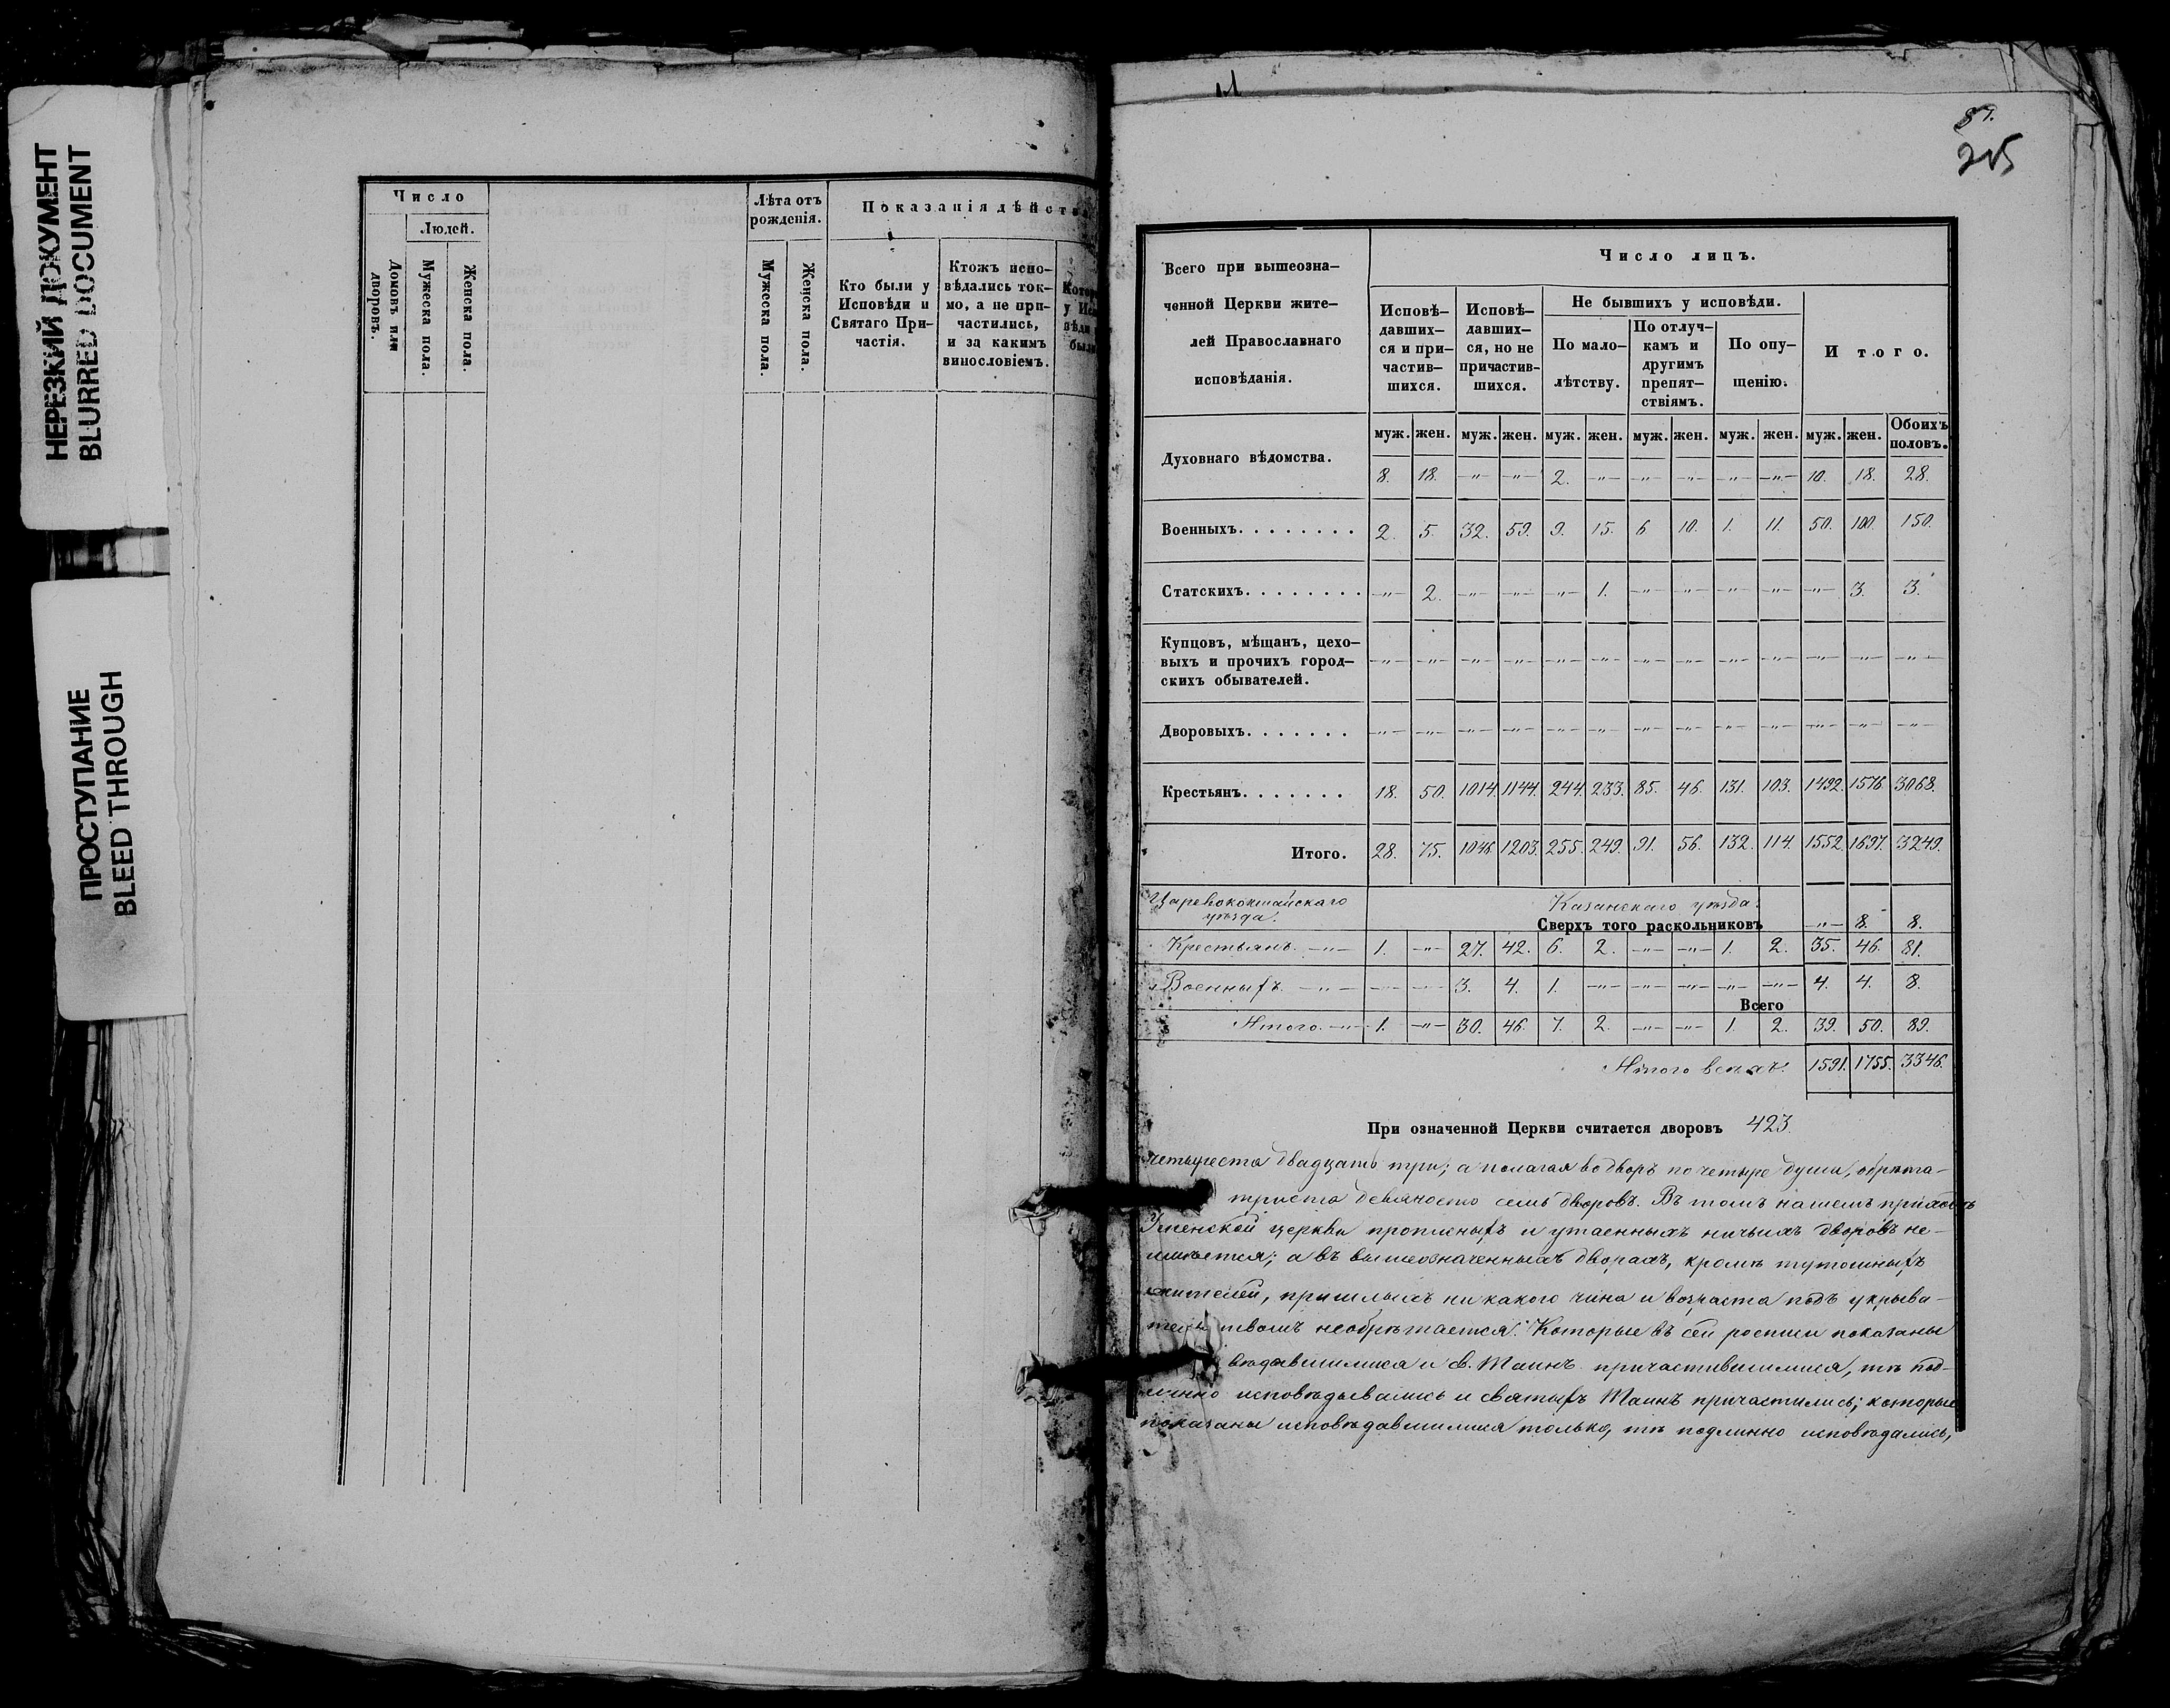 НЕРЕЗКИЙ ДОКУМЕНТ
BLURRED DOCUMENT
ПРОСТУПАНИЕ
BLEED THROUGH
Число
Людей.
Домовъ или дворовъ.
Мужеска пола.
Женска пола.
Лѣта отъ рожденія.
Мужеска пола.
Женска пола.
Показанія дѣйств
Кто были у Исповѣди и Святаго Причастія.
Ктожъ исповѣдались токмо, а не причастились, и за какимъ винословіемъ.
215
Всего при вышеозна-
ченной Церкви жите-
лей Православнаго
исповѣданія.
Число лицъ.
Исповѣ-давших-ся и при-частив-шихся.
Исповѣ-давших-ся, но не причастив-шихся.
Не бывшихъ у исповѣди.
По мало-лѣтству.
По отлуч-камъ и другимъ препят-ствіямъ.
По опу-щенію.
И того.
муж. жен. муж. жен. муж. жен. муж. жен. муж. жен. муж. жен. Обоихъ половъ.
Духовнаго вѣдомства. 8. 18. —„— —„— 2. —„— —„— —„— —„— —„— 10. 18. 28.
Военныхъ. . . . . . . . 2. 5. 32. 59. 9. 15. 6 10. 1. 11. 50. 100. 150.
Статскихъ. . . . . . . . —„— 2. —„— —„— —„— 1. —„— —„— —„— —„— —„— 3. 3.
Купцовъ, мѣщанъ, цехо-
выхъ и прочихъ город-
скихъ обывателей. —„— —„— —„— —„— —„— —„— —„— —„— —„— —„— —„— —„— —„—
Дворовыхъ. . . . . . . —„— —„— —„— —„— —„— —„— —„— —„— —„— —„— —„— —„— —„—
Крестьянъ. . . . . . . 18. 50. 1014. 1144. 244. 233. 85. 46. 131. 103. 1492. 1576. 3068.
Итого. 28. 75. 1046. 1203. 255. 249. 91. 56. 132. 114. 1552. 1697. 3249.
Царевококшайскаго уѣзда.
Казанскаго уѣзда.
Сверхъ того раскольниковъ —„— 8. 8.
Крестьянъ. —„— 1. —„— 27. 42. 6. 2. —„— —„— 1. 2. 35. 46. 81.
Военныхъ. —„— — — 3. 4. 1. —„— —„— —„— —„— —„— 4. 4. 8.
Всего
Итого. —„— 1. —„— 30. 46. 7. 2. —„— —„— 1. 2. 39. 50. 89.
Итого всѣхъ. 1591. 1755. 3346.
При означенной Церкви считается дворовъ 423.
четыреста двадцать три; а полагая во дворъ по четыре души, обрѣта-
триста девяносто семь дворовъ. Въ томъ нашемъ приходѣ
церкви прописныхъ и утаенныхъ ничьихъ дворовъ не-
имѣется; а въ вышеозначенныхъ дворахъ, кромѣ тутошныхъ
жителей, пришлыхъ ни какого чина и возраста подъ укрыва-
тельствомъ необрѣтается. Которые въ сей росписи показаны
вѣдавшимися и св. Таинъ причастившимися, тѣ под-
линно исповѣдывались и святыхъ Таинъ причастились; которые
показаны исповѣдавшимися только, тѣ подлинно исповѣдались,